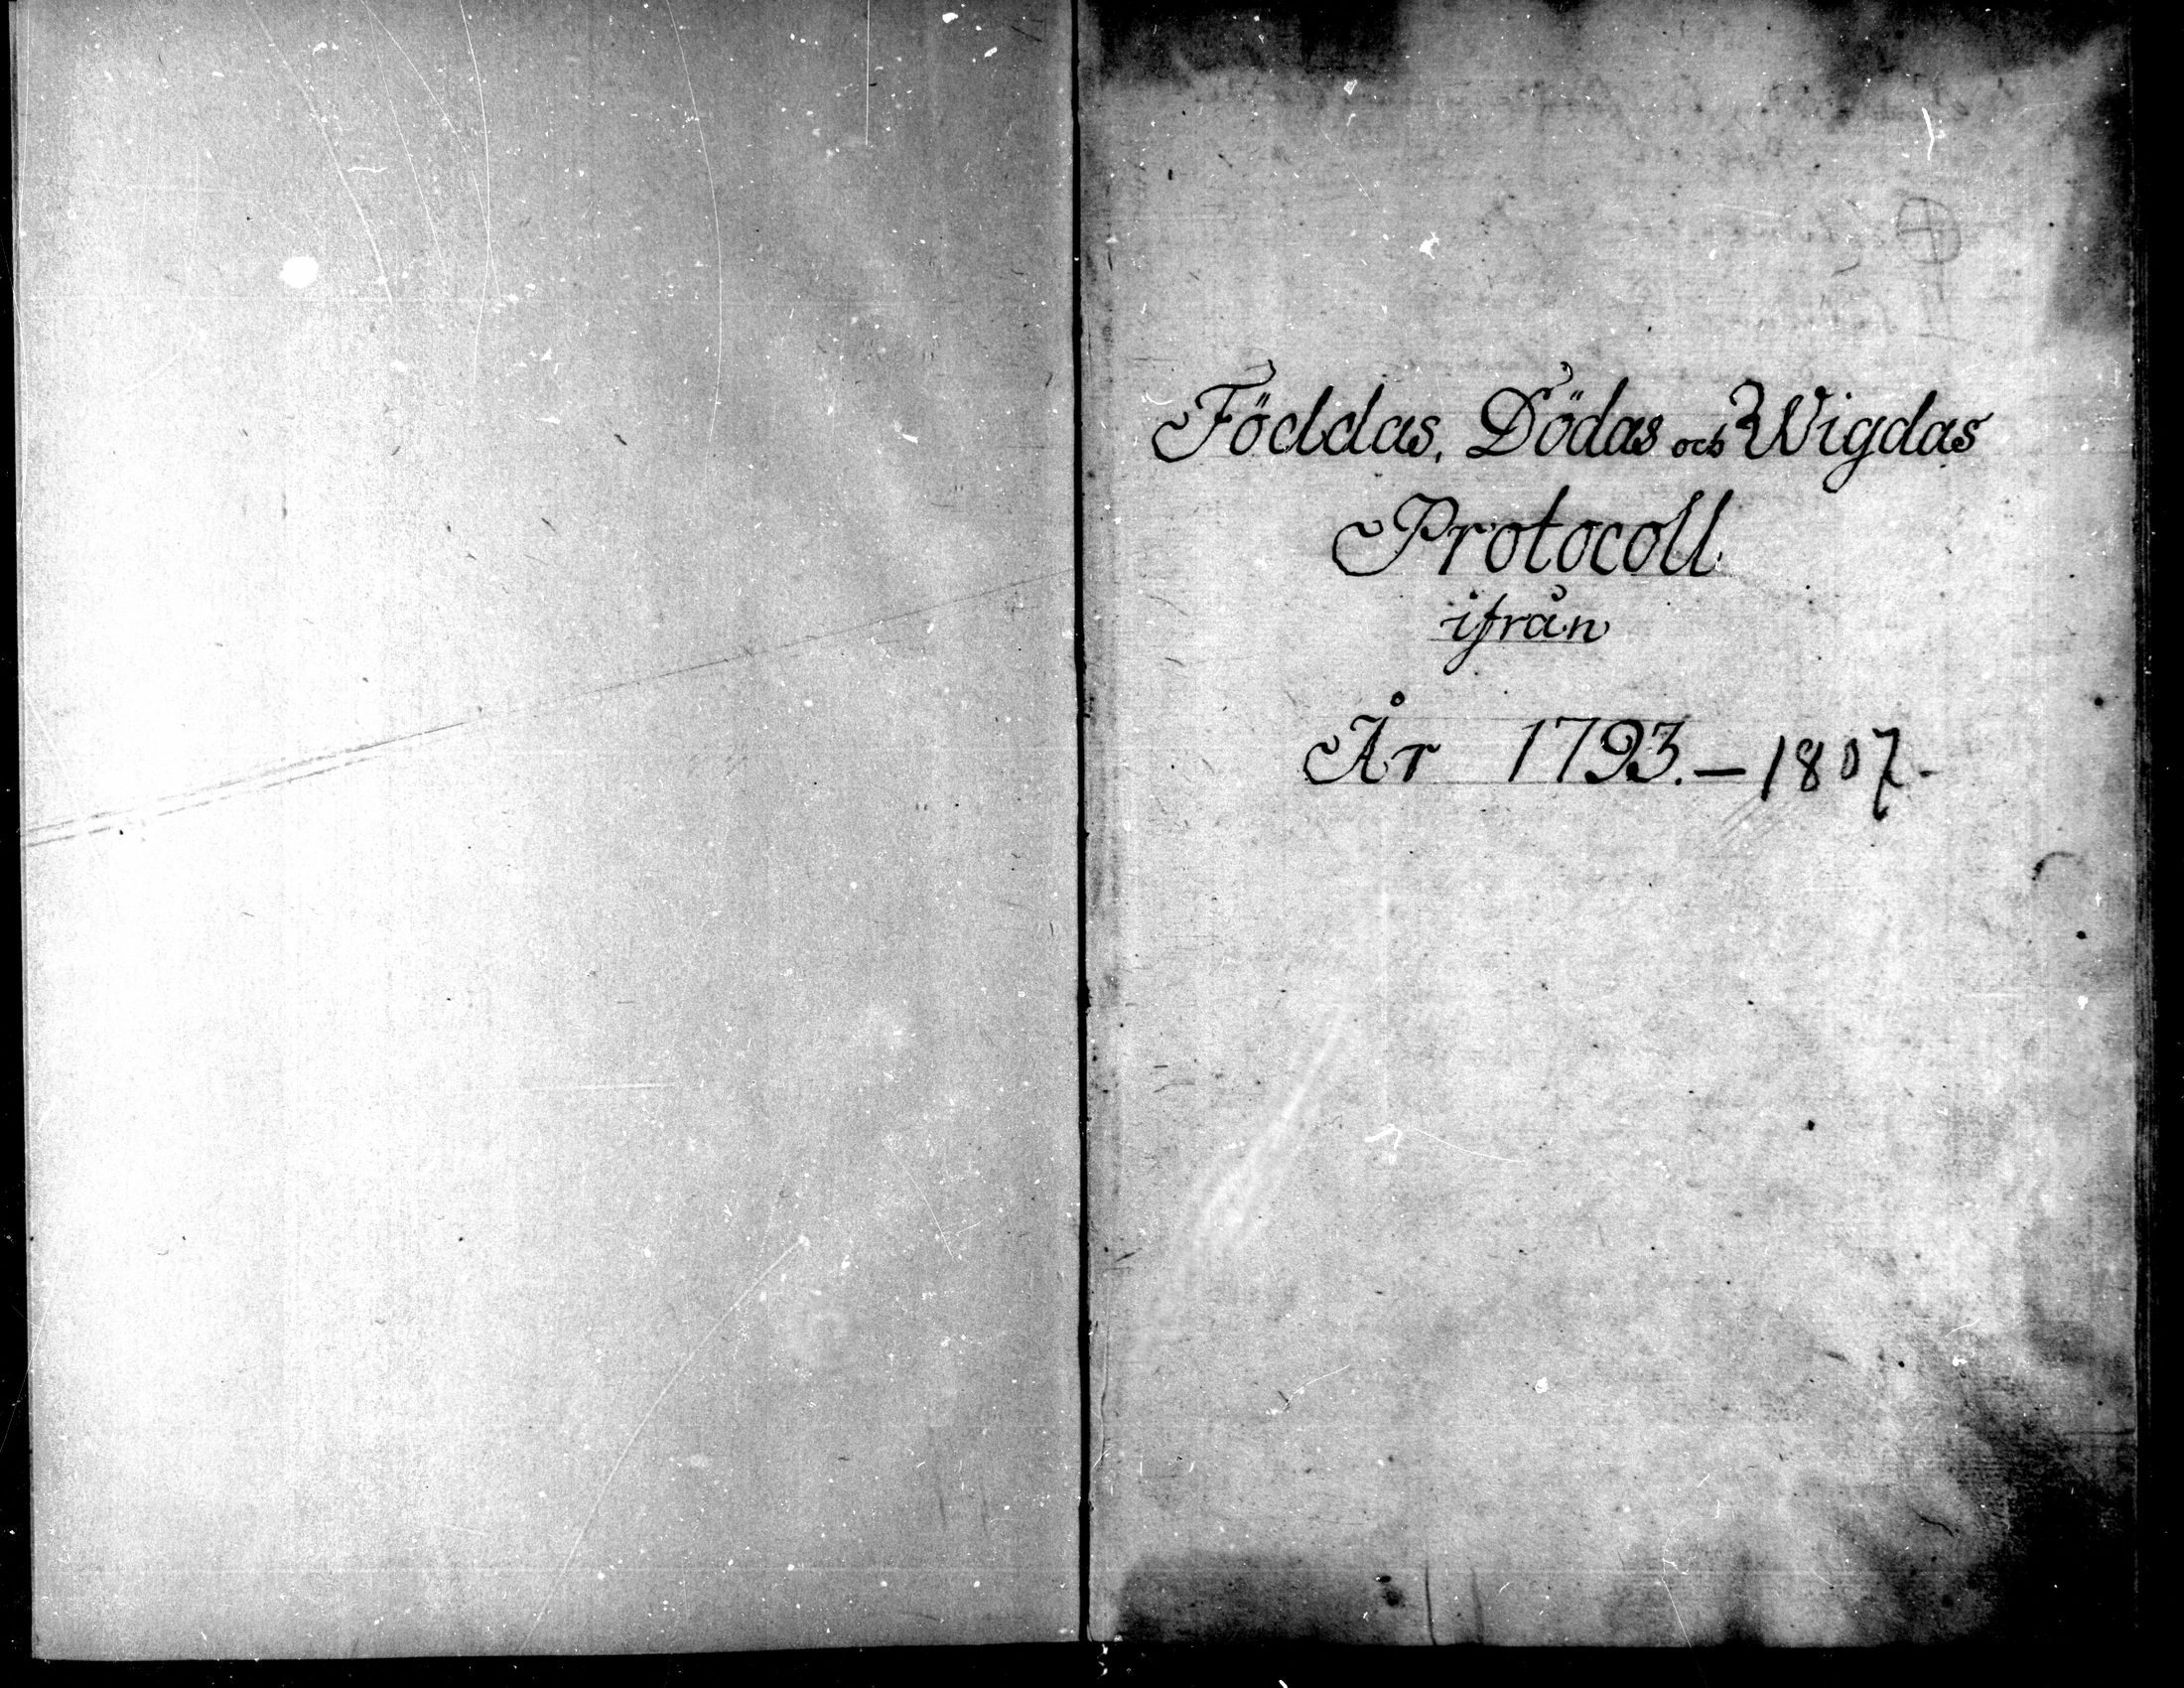 Föddas, Dödas och Wigdas
Protocoll
ifrån
År 1793. – 1807.